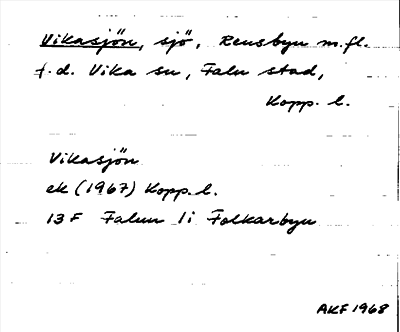 Vikasjön, sjö, Rensbyn m.fl.
f.d. Vika sn, Falu stad,
Kopp. l.
Vikasjön
ek (1967) Kopp. l.
13 F Falun 1i Folkarbyn
AKF 1968